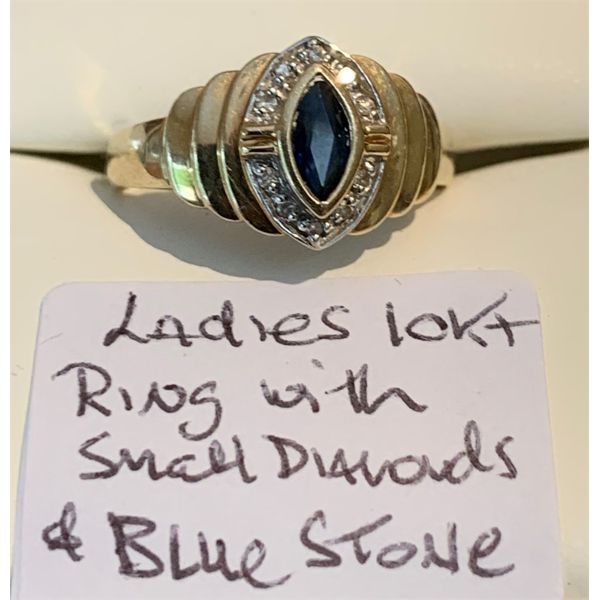 Ladies 10Kt
Ring with
Small Diamonds
& Blue Stone